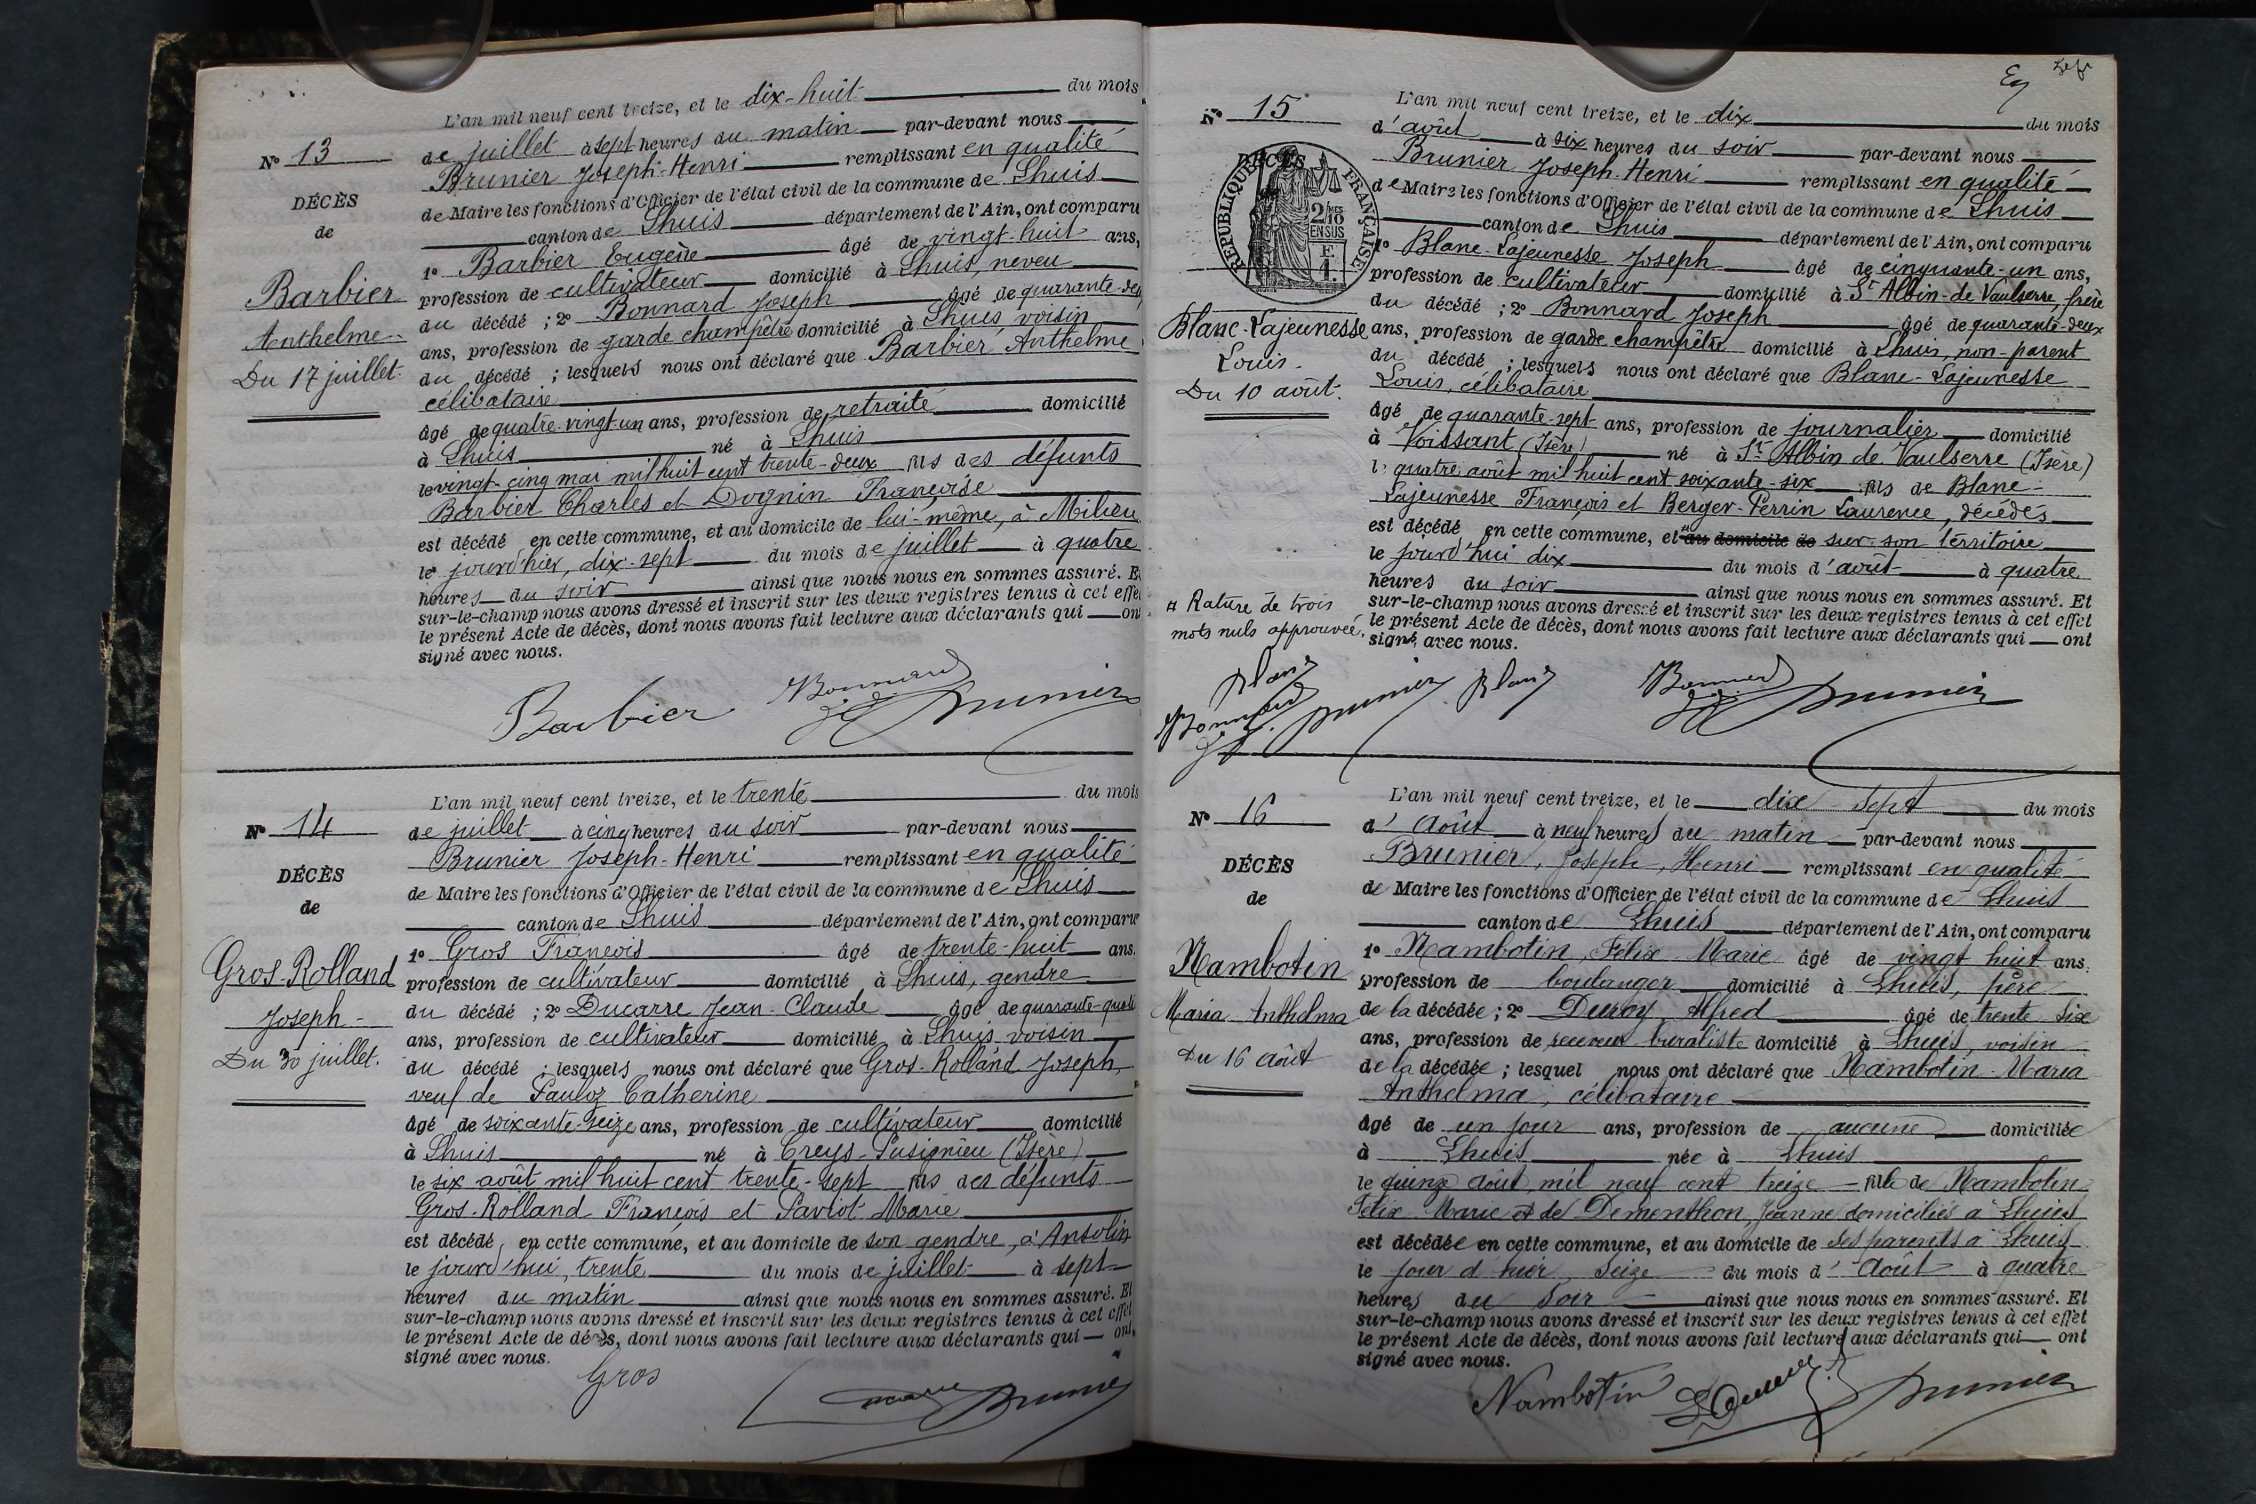 L'an mil neuf cent treize, et le dix-huit du mois
Nº 13
de juillet à sept heures du matin par-devant nous
Brunier Joseph-Henri remplissant en qualité
DÉCÈS
de Maire les fonctions d'Officier de l'état civil de la commune de Lhuis
de
canton de Lhuis département de l'Ain, ont comparu
1º Barbier Eugène âgé de vingt-huit ans,
Barbier
profession de cultivateur domicilié à Lhuis, neveu
Anthelme
du décédé ; 2º Bonnard Joseph âgé de quarante-deux
ans, profession de garde champêtre domicilié à Lhuis, voisin
Du 17 juillet.
du décédé ; lesquels nous ont déclaré que Barbier Anthelme
célibataire
âgé de quatre-vingt-un ans, profession de retraité domicilié
à Lhuis né à Lhuis
le vingt-cinq mai mil huit cent trente-deux fils des défunts
Barbier Charles et Dognin Françoise
est décédé en cette commune, et au domicile de lui-même, à Milieu
le jourd'hier, dix-sept du mois de juillet à quatre
heures du soir ainsi que nous nous en sommes assuré. Et
sur-le-champ nous avons dressé et inscrit sur les deux registres tenus à cet effet
le présent Acte de décès, dont nous avons fait lecture aux déclarants qui ont
signé avec nous.
Barbier Bonnard Brunier
L'an mil neuf cent treize, et le trente du mois
Nº 14
de juillet à cinq heures du soir par-devant nous
Brunier Joseph-Henri remplissant en qualité
DÉCÈS
de Maire les fonctions d'Officier de l'état civil de la commune de Lhuis
de
canton de Lhuis département de l'Ain, ont comparu
1º Gros François âgé de trente-huit ans.
Gros-Rolland
profession de cultivateur domicilié à Lhuis, gendre
Joseph
du décédé ; 2º Ducarre Jean-Claude âgé de quarante-quatre
ans, profession de cultivateur domicilié à Lhuis, voisin
Du 30 juillet.
du décédé ; lesquels nous ont déclaré que Gros-Rolland Joseph,
veuf de Pauloz Catherine
âgé de soixante-seize ans, profession de cultivateur domicilié
à Lhuis né à Creys-Pusignieu (Isère)
le six août mil huit cent trente-sept fils des défunts
Gros-Rolland François et Paviot Marie
est décédé en cette commune, et au domicile de son gendre, à Ansolin
le jourd'hui, trente du mois de juillet à sept
heures du matin ainsi que nous nous en sommes assuré. Et
sur-le-champ nous avons dressé et inscrit sur les deux registres tenus à cet effet
le présent Acte de décès, dont nous avons fait lecture aux déclarants qui ont
signé avec nous.
Gros Brunier
L'an mil neuf cent treize, et le dix du mois
Nº 15
d'août à six heures du soir par-devant nous
Brunier Joseph-Henri remplissant en qualité
DÉCÈS
RÉPUBLIQUE FRANÇAISE
2/10 EN SUS
de Maire les fonctions d'Officier de l'état civil de la commune de Lhuis
canton de Lhuis département de l'Ain, ont comparu
1º Blanc-Lajeunesse Joseph âgé de cinquante-un ans,
profession de cultivateur domicilié à St Albin-de Vaulserre, frère
du décédé ; 2º Bonnard Joseph âgé de quarante-deux
Blanc-Lajeunesse
ans, profession de garde champêtre domicilié à Lhuis, non-parent
Louis.
du décédé ; lesquels nous ont déclaré que Blanc-Lajeunesse
Du 10 août.
Louis, célibataire
âgé de quarante-sept ans, profession de journalier domicilié
à Voissant (Isère) né à St Albin de Vaulserre (Isère)
le quatre août mil huit cent soixante-six fils de Blanc-
Lajeunesse François et Berger-Perrin Laurence, décédés
est décédé en cette commune, et au domicile de sur son territoire
le jourd'hui dix du mois d'août à quatre
heures du soir ainsi que nous nous en sommes assuré. Et
sur-le-champ nous avons dressé et inscrit sur les deux registres tenus à cet effet
¤ Rature de trois
mots nuls approuvée.
le présent Acte de décès, dont nous avons fait lecture aux déclarants qui ont
signé avec nous.
Blanc Bonnard Brunier
Blanc Bonnard Brunier
L'an mil neuf cent treize, et le dix sept du mois
Nº 16
d'Août à neuf heures du matin par-devant nous
Brunier, Joseph, Henri remplissant en qualité
DÉCÈS
de Maire les fonctions d'Officier de l'état civil de la commune de Lhuis
de
canton de Lhuis département de l'Ain, ont comparu
1º Nambotin, Félix Marie âgé de vingt huit ans,
Nambotin
profession de boulanger domicilié à Lhuis, père
Maria Anthelma
de la décédée ; 2º Duroy, Alfred âgé de trente six
ans, profession de receveur buraliste domicilié à Lhuis, voisin
Du 16 Août
de la décédée ; lesquel nous ont déclaré que Nambotin Maria
Anthelma, célibataire
âgé de un jour ans, profession de aucune domiciliée
à Lhuis née à Lhuis
le quinze août mil neuf cent treize fille de Nambotin
Félix Marie et de Dementhon, Jeanne domiciliés à Lhuis
est décédée en cette commune, et au domicile de ses parents à Lhuis
le jour d'hier seize du mois d'Août à quatre
heures du soir ainsi que nous nous en sommes assuré. Et
sur-le-champ nous avons dressé et inscrit sur les deux registres tenus à cet effet
le présent Acte de décès, dont nous avons fait lecture aux déclarants qui ont
signé avec nous.
Nambotin Brunier